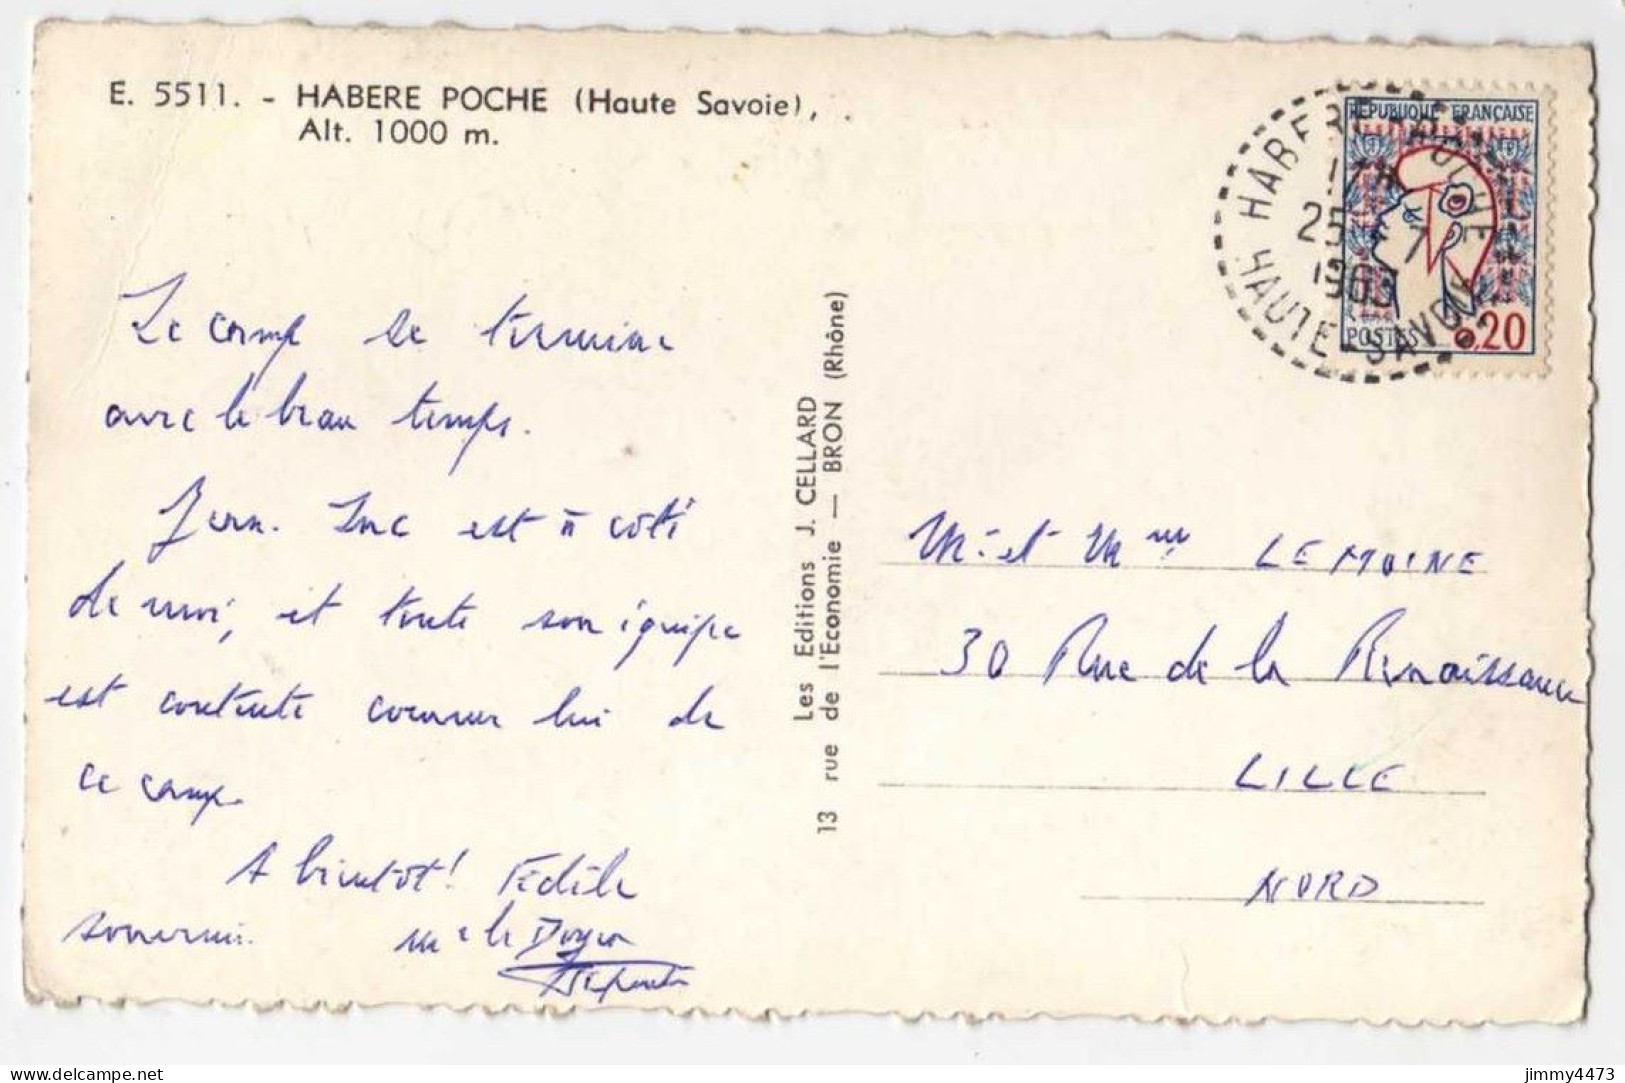 E. 5511. - HABERE POCHE (Haute Savoie),
Alt. 1000 m.
Le camp se termine
avec le beau temps.
Jean-Luc est à côté
de moi, et toute son équipe
est contente comme lui de
ce camp.
A bientôt! Fidèle
souvenir.
Les Editions J. CELLARD
13 rue de l'Economie — BRON (Rhône)
HABERE-POCHE
25 - 7
1963
HAUTE-SAVOIE
REPUBLIQUE FRANÇAISE
POSTES 0,20
Mr et Mme LEMOINE
30 Rue de la Renaissance
LILLE
NORD
delcampe.net
jimmy4473